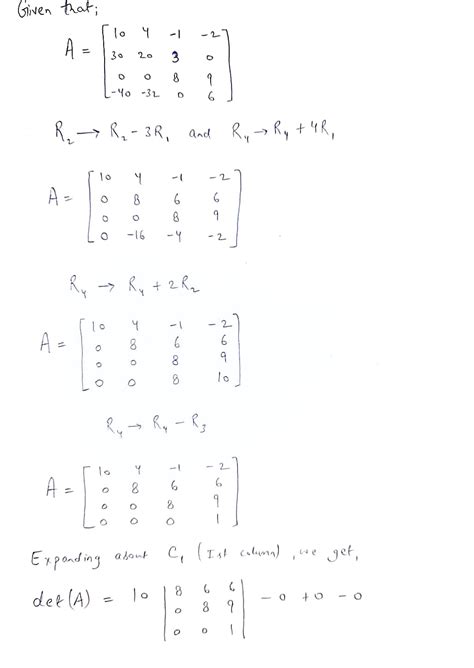 Given that;
A = [ 10 4 -1 -2
30 20 3 0
0 0 8 9
-40 -32 0 6 ]
R₂ → R₂ - 3R₁ and R₄ → R₄ + 4R₁
A = [ 10 4 -1 -2
0 8 6 6
0 0 8 9
0 -16 -4 -2 ]
R₄ → R₄ + 2R₂
A = [ 10 4 -1 -2
0 8 6 6
0 0 8 9
0 0 8 10 ]
R₄ → R₄ - R₃
A = [ 10 4 -1 -2
0 8 6 6
0 0 8 9
0 0 0 1 ]
Expanding about C₁ (Ist column), we get,
det(A) = 10 | 8 6 6
0 8 9
0 0 1 | - 0 + 0 - 0